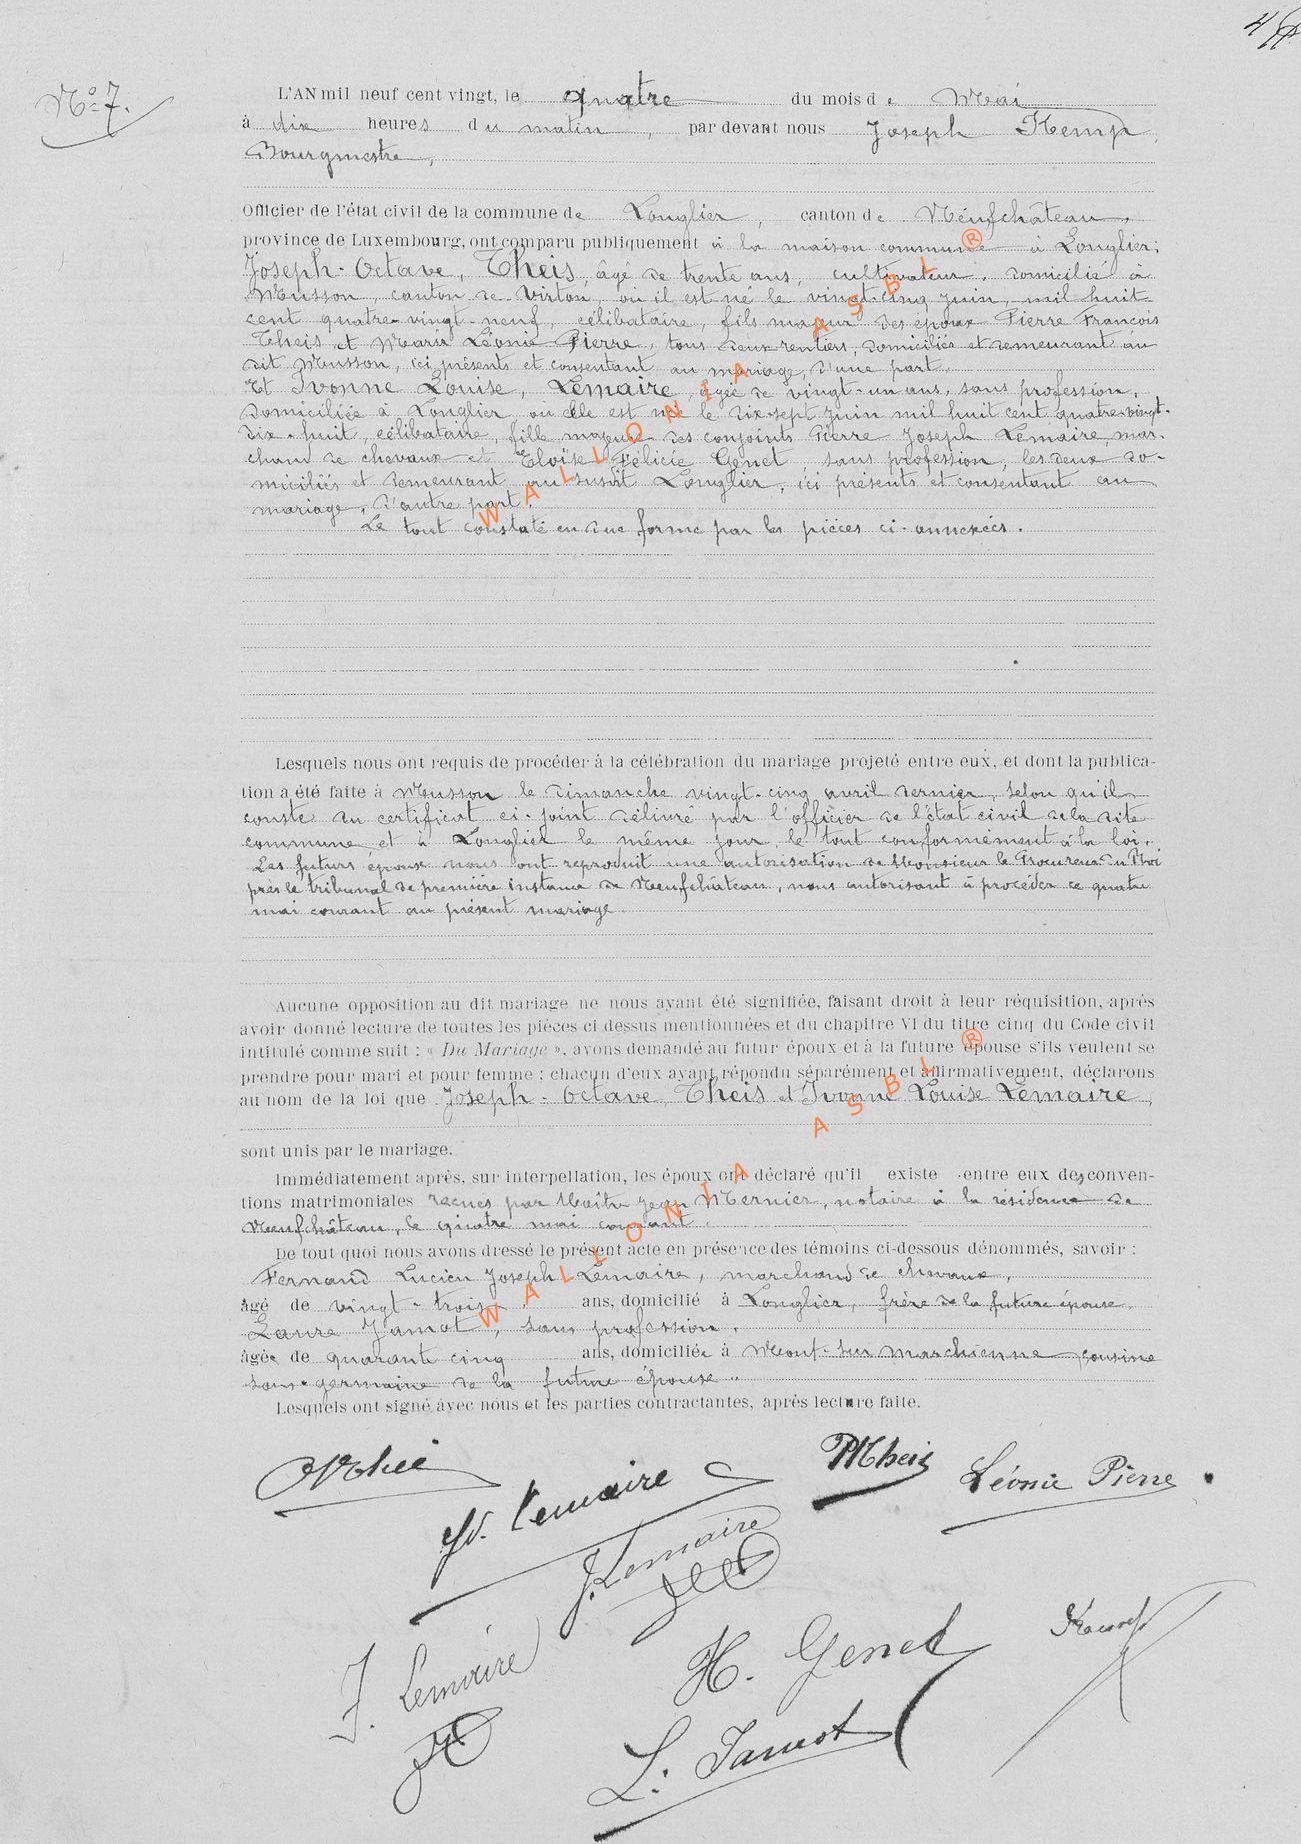 4
No 7.
L'AN mil neuf cent vingt, le quatre du mois de Mai
à dix heures du matin, par devant nous Joseph Kemp,
Bourgmestre,
Officier de l'état civil de la commune de Longlier, canton de Néufchâteau,
province de Luxembourg, ont comparu publiquement à la maison commune à Longlier:
Joseph-Octave, Theis, âgé de trente ans, cultivateur, domicilié à
Musson, canton de Virton, où il est né le vingt-cinq juin, mil huit
cent quatre-vingt-neuf, célibataire, fils majeur des époux Pierre François
Theis et Maria Léonie Pierre, tous deux rentiers, domiciliés et demeurant au
dit Musson, ici présents et consentant au mariage, d'une part.
Et Ivonne Louise, Lemaire, âgée de vingt-un ans, sans profession,
domiciliée à Longlier où elle est née le dix-sept juin mil huit cent quatre-vingt-
dix-huit, célibataire, fille majeure des conjoints Pierre Joseph Lemaire, mar-
chand de chevaux et Eloïse Félicie Genet, sans profession, les deux do-
miciliés et demeurant au susdit Longlier, ici présents et consentant au
mariage, d'autre part.
Le tout constaté en due forme par les pièces ci-annexées.
Lesquels nous ont requis de procéder à la célébration du mariage projeté entre eux, et dont la publica-
tion a été faite à Musson le dimanche vingt-cinq avril dernier, selon qu'il
conste du certificat ci-joint délivré par l'officier de l'état civil de la dite
commune et à Longlier le même jour, le tout conformément à la loi.
Les futurs époux nous ont reproduit une autorisation de Monsieur le Procureur du Roi
près le tribunal de première instance de Neufchâteau, nous autorisant à procéder ce quatre
mai courant au présent mariage.
Aucune opposition au dit mariage ne nous ayant été signifiée, faisant droit à leur réquisition, après
avoir donné lecture de toutes les pièces ci dessus mentionnées et du chapitre VI du titre cinq du Code civil
intitulé comme suit : « Du Mariage », avons demandé au futur époux et à la future épouse s'ils veulent se
prendre pour mari et pour femme ; chacun d'eux ayant répondu séparément et affirmativement, déclarons
au nom de la loi que Joseph-Octave, Theis et Ivonne Louise Lemaire,
sont unis par le mariage.
Immédiatement après, sur interpellation, les époux ont déclaré qu'il existe entre eux des conven-
tions matrimoniales reçues par Maître Jean Mernier, notaire à la résidence de
Neufchâteau, le quatre mai courant.
De tout quoi nous avons dressé le présent acte en présence des témoins ci-dessous dénommés, savoir :
Fernand Lucien Joseph Lemaire, marchand de chevaux,
âgé de vingt-trois ans, domicilié à Longlier, frère de la future épouse.
Laure Jamot, sans profession,
âgée de quarante cinq ans, domiciliée à Mont-sur-Marchienne, cousine
sous-germaine de la future épouse.
Lesquels ont signé avec nous et les parties contractantes, après lecture faite.
Lemaire
Theis
Léonie Pierre
J. Lemaire
F. Lemaire
H. Genet
L. Jamot
WALLONIA ASBL®
WALLONIA ASBL®